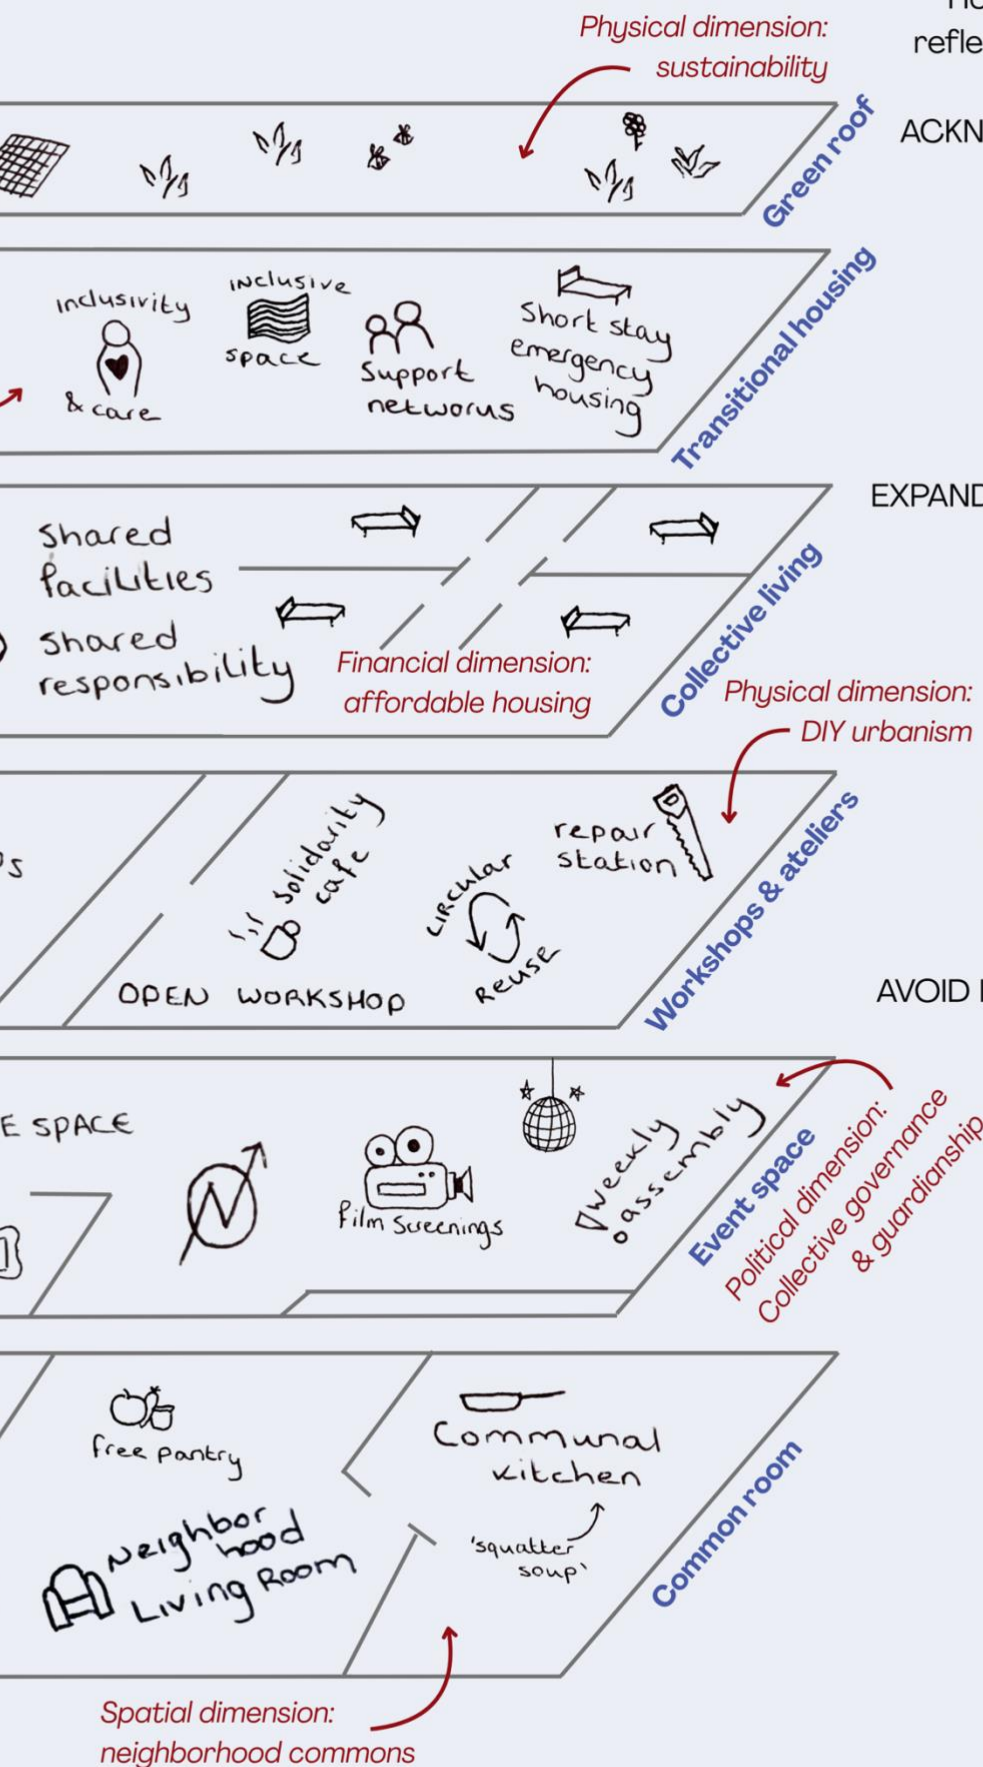 Physical dimension:
sustainability
refle
Green roof
ACKN
inclusivity
& care
inclusive
space
Support
networks
Short stay
emergency
housing
Transitional housing
EXPAND
Shared
facilities
Shared
responsibility
Financial dimension:
affordable housing
Collective living
Physical dimension:
DIY urbanism
solidarity
cafe
CIRCULAR
REUSE
repair
station
OPEN WORKSHOP
Workshops & ateliers
AVOID
E SPACE
film screenings
weekly
assembly
Event space
Political dimension:
Collective governance
& guardianship
free pantry
Neighbor
hood
Living Room
Communal
kitchen
'squatter
soup'
Common room
Spatial dimension:
neighborhood commons